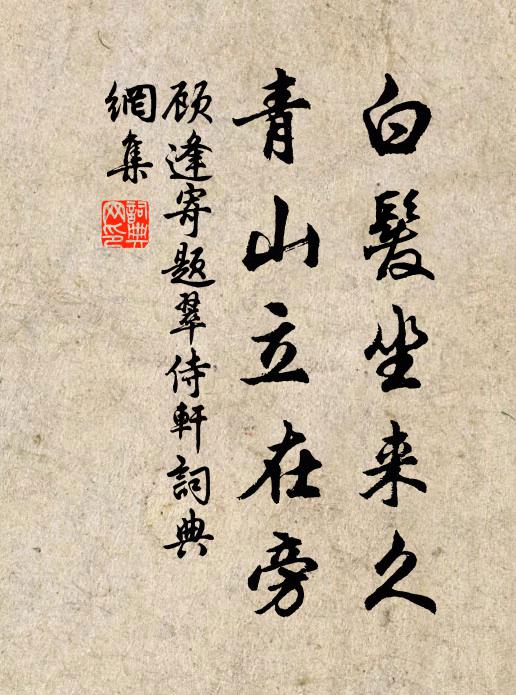 白髮坐来久
青山立在旁
顾逢寄题翠侍軒詞典
網集
詞典
网印